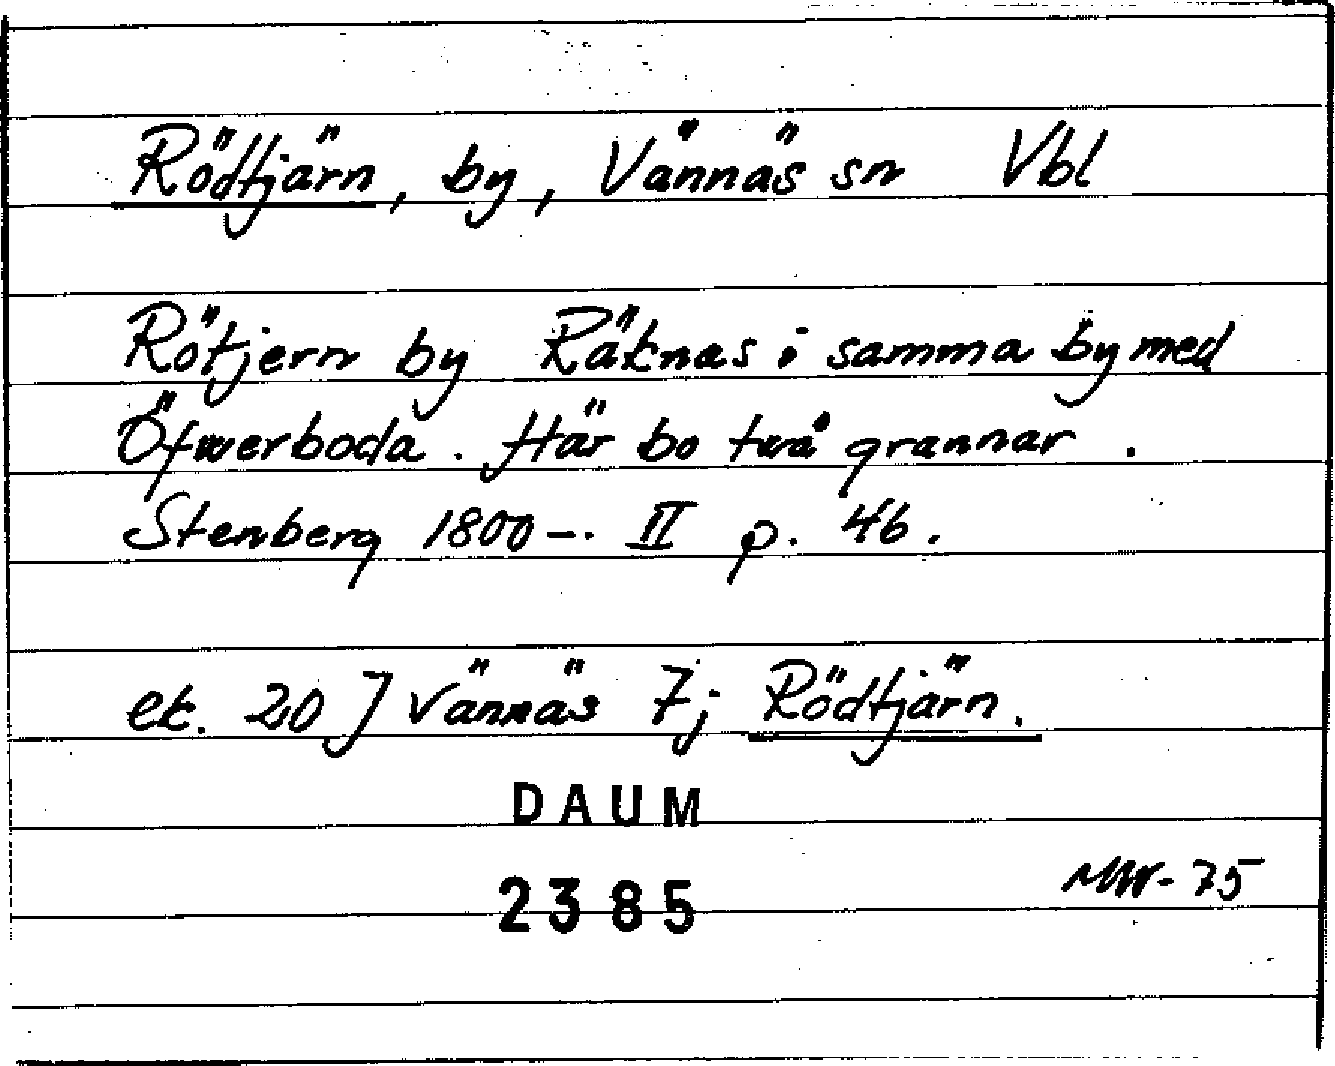 Rödtjärn, by, Vännäs sn Vbl
Rötjern by Räknas i samma by med
Öfwerboda. Här bo två grannar.
Stenberg 1800-. II p. 46.
ek. 20 J Vännäs 7j Rödtjärn.
DAUM
2385
MW-75